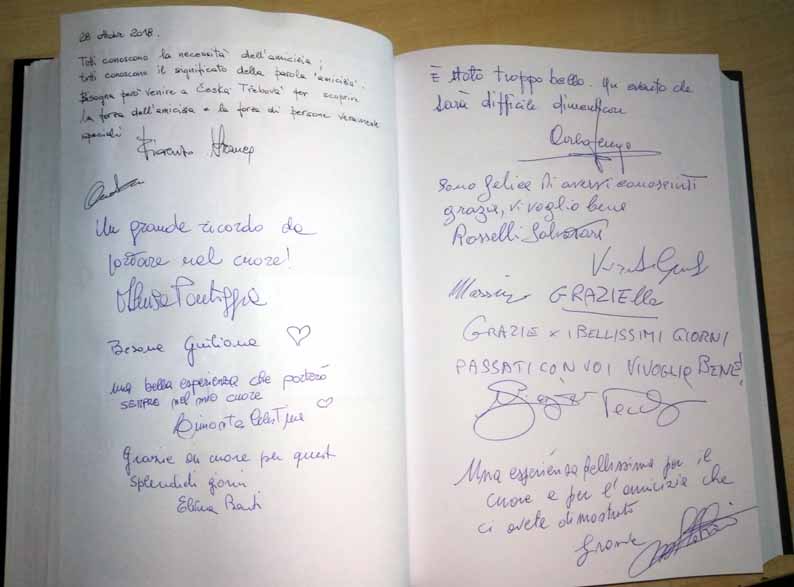 28 ottobre 2018.
Tutti conoscono la necessità dell'amicizia;
tutti conoscono il significato della parola 'amicizia'.
Bisogna però venire a Česká Třebová per scoprire
la forza dell'amicizia e la forza di persone veramente
speciali
Un grande ricordo da
portare nel cuore!
Besana Giuliana
una bella esperienza che porterò
SEMPRE nel mio cuore
Grazie di cuore per questi
splendidi giorni
È stato troppo bello. Un evento che
sarà difficile dimenticare
Sono felice di avervi conosciuti
grazie, vi voglio bene
Rosselli Salvatore
GRAZIElla
GRAZIE x I BELLISSIMI GIORNI
PASSATI CON VOI VI VOGLIO BENE!
Una esperienza bellissima per il
cuore e per l'amicizia che
ci avete dimostrato
Grazie